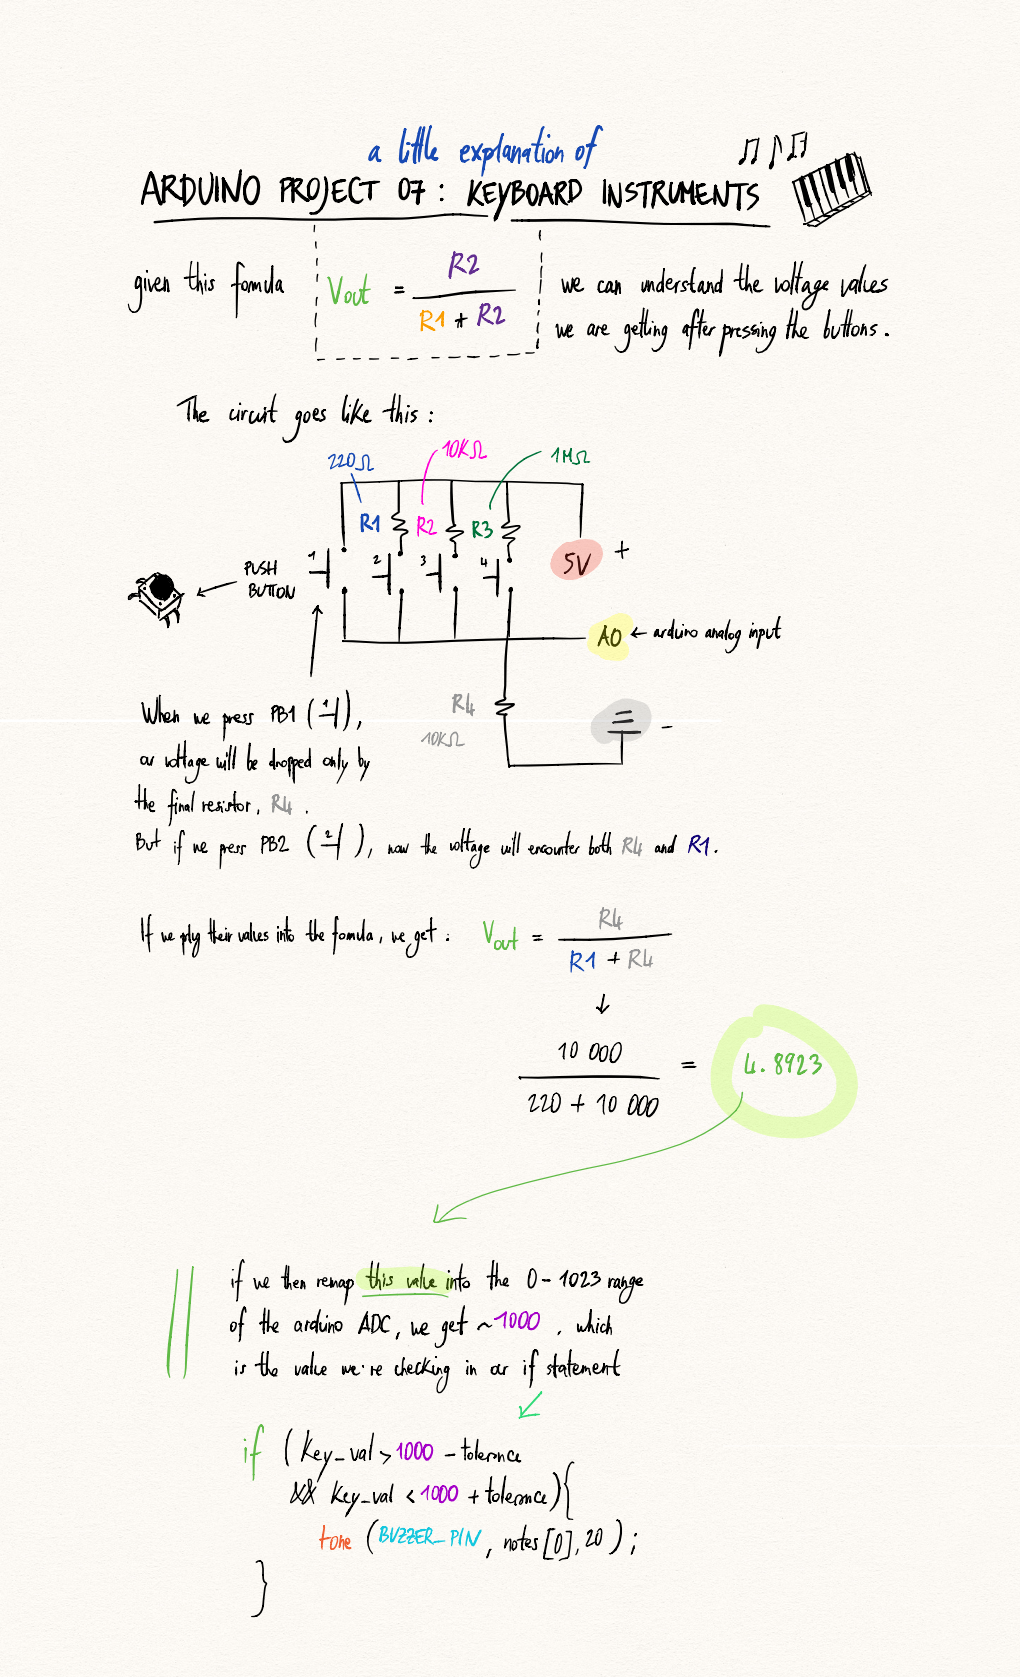 a little explanation of
ARDUINO PROJECT 07: KEYBOARD INSTRUMENTS
given this formula
Vout = R2
R1 + R2
we can understand the voltage values
we are getting after pressing the buttons.
The circuit goes like this:
220Ω
10KΩ
1MΩ
R1
R2
R3
1
2
3
4
5V +
PUSH
BUTTON
A0 ← arduino analog input
R4
10KΩ
-
When we press PB1 (1),
our voltage will be dropped only by
the final resistor, R4.
But if we press PB2 (2), now the voltage will encounter both R4 and R1.
If we plug their values into the formula, we get:
Vout = R4
R1 + R4
↓
10 000
220 + 10 000
= 4.8923
if we then remap this value into the 0-1023 range
of the arduino ADC, we get ~1000, which
is the value we're checking in our if statement
if (key_val > 1000 - tolerance
&& key_val < 1000 + tolerance){
tone (BUZZER_PIN, notes[0], 20);
}